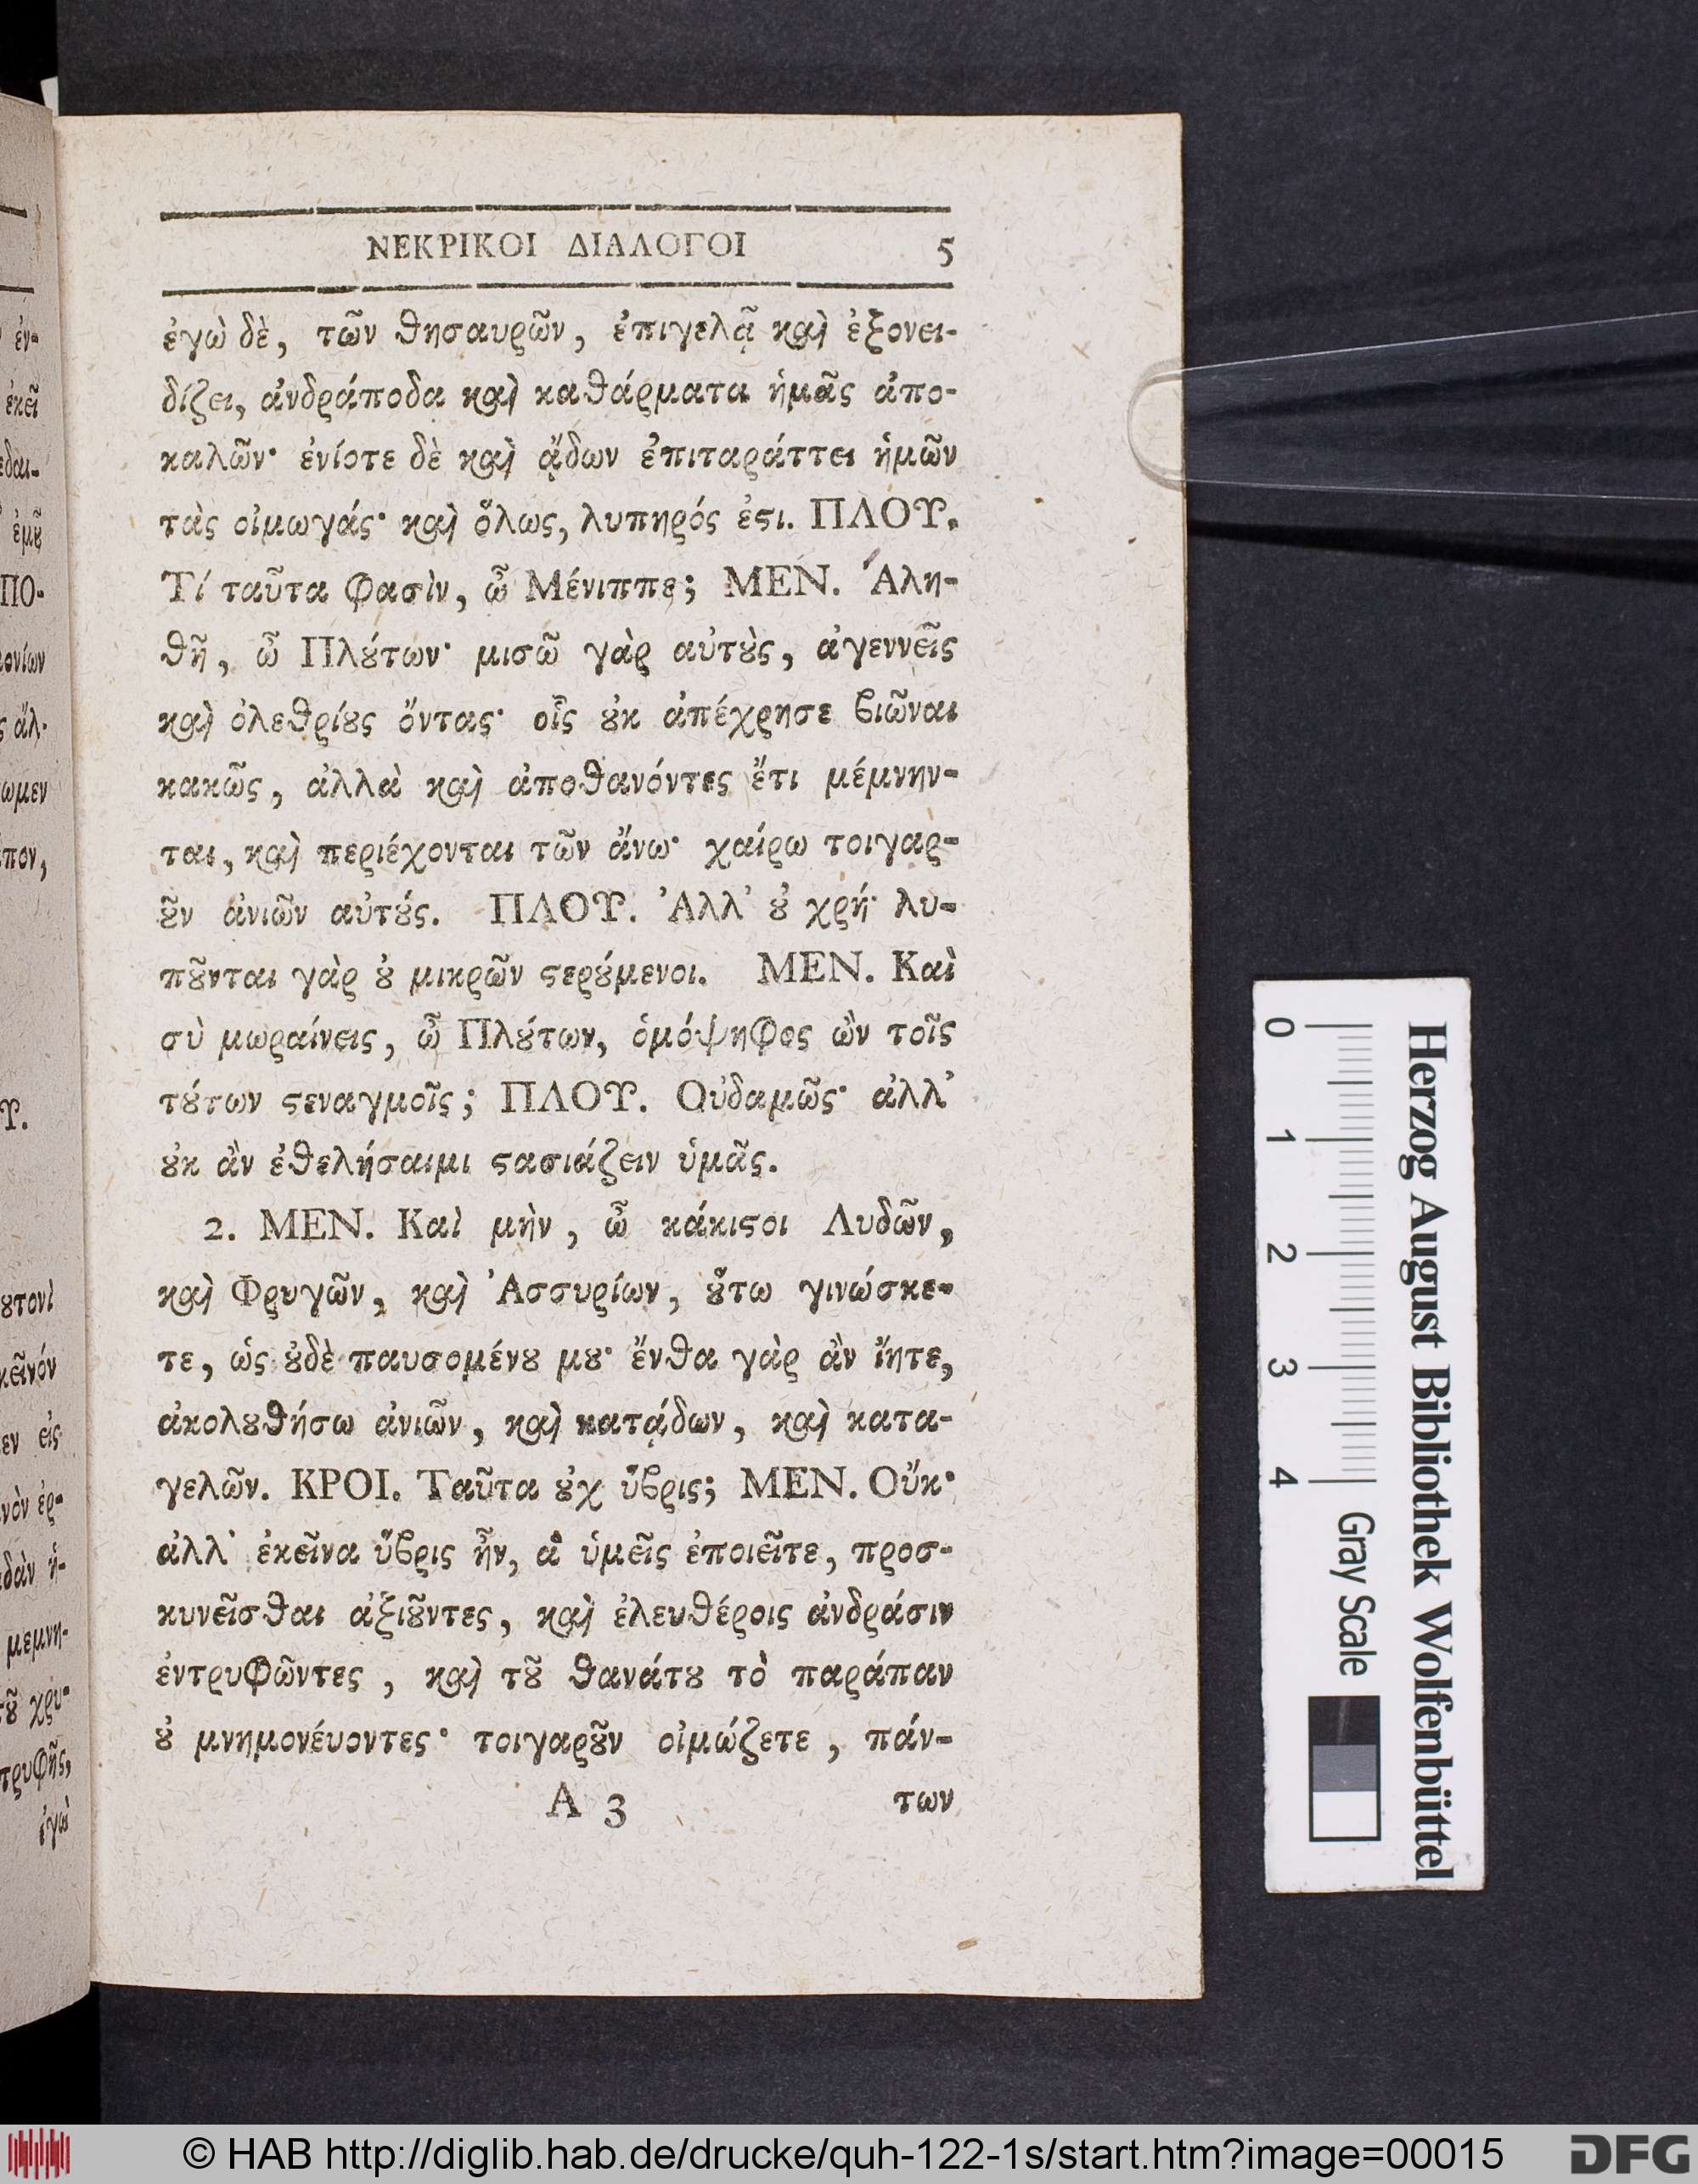 ΝΕΚΡΙΚΟΙ ΔΙΑΛΟΓΟΙ 5
ἐγὼ δὲ, τῶν θησαυρῶν, ἐπιγελᾷ καὶ ἐξονει-
δίζει, ἀνδράποδα καὶ καθάρματα ἡμᾶς ἀπο-
καλῶν· ἐνίοτε δὲ καὶ ᾄδων ἐπιταράττει ἡμῶν
τὰς οἰμωγάς· καὶ ὅλως, λυπηρός ἐϛι. ΠΛΟΥ.
Τί ταῦτα φασὶν, ὦ Μένιππε; ΜΕΝ. Ἀλη-
θῆ, ὦ Πλȣ́των· μισῶ γὰρ αὐτȣ̀ς, ἀγεννεῖς
καὶ ὀλεθρίȣς ὄντας· οἷς ȣ̓κ ἀπέχρησε βιῶναι
κακῶς, ἀλλὰ καὶ ἀποθανόντες ἔτι μέμνην-
ται, καὶ περιέχονται τῶν ἄνω· χαίρω τοιγαρ-
ȣ͂ν ἀνιῶν αὐτȣ́ς. ΠΛΟΥ. Ἀλλ’ ȣ̓ χρή· λυ-
πȣ͂νται γὰρ ȣ̓ μικρῶν ϛερȣ́μενοι. ΜΕΝ. Καὶ
σὺ μωραίνεις, ὦ Πλȣ́των, ὁμόψηφος ὢν τοῖς
τȣ́των ϛεναγμοῖς; ΠΛΟΥ. Οὐδαμῶς· ἀλλ’
ȣ̓κ ἂν ἐθελήσαιμι ϛασιάζειν ὑμᾶς.
2. ΜΕΝ. Καὶ μὴν, ὦ κάκιϛοι Λυδῶν,
καὶ Φρυγῶν, καὶ Ἀσσυρίων, ȣ̔́τω γινώσκε-
τε, ὡς ȣ̓δὲ παυσομένȣ μȣ· ἔνθα γὰρ ἂν ἴητε,
ἀκολȣθήσω ἀνιῶν, καὶ κατᾴδων, καὶ κατα-
γελῶν. ΚΡΟΙ. Ταῦτα ȣ̓χ ὕβρις; ΜΕΝ. Οὔκ·
ἀλλ’ ἐκεῖνα ὕβρις ἦν, ἃ ὑμεῖς ἐποιεῖτε, προσ-
κυνεῖσθαι ἀξιȣ͂ντες, καὶ ἐλευθέροις ἀνδράσιν
ἐντρυφῶντες, καὶ τȣ͂ θανάτȣ τὸ παράπαν
ȣ̓ μνημονέυοντες· τοιγαρȣ͂ν οἰμώζετε, πάν-
A 3 των
Herzog August Bibliothek Wolfenbüttel
0 1 2 3 4 Gray Scale
© HAB http://diglib.hab.de/drucke/quh-122-1s/start.htm?image=00015
DFG